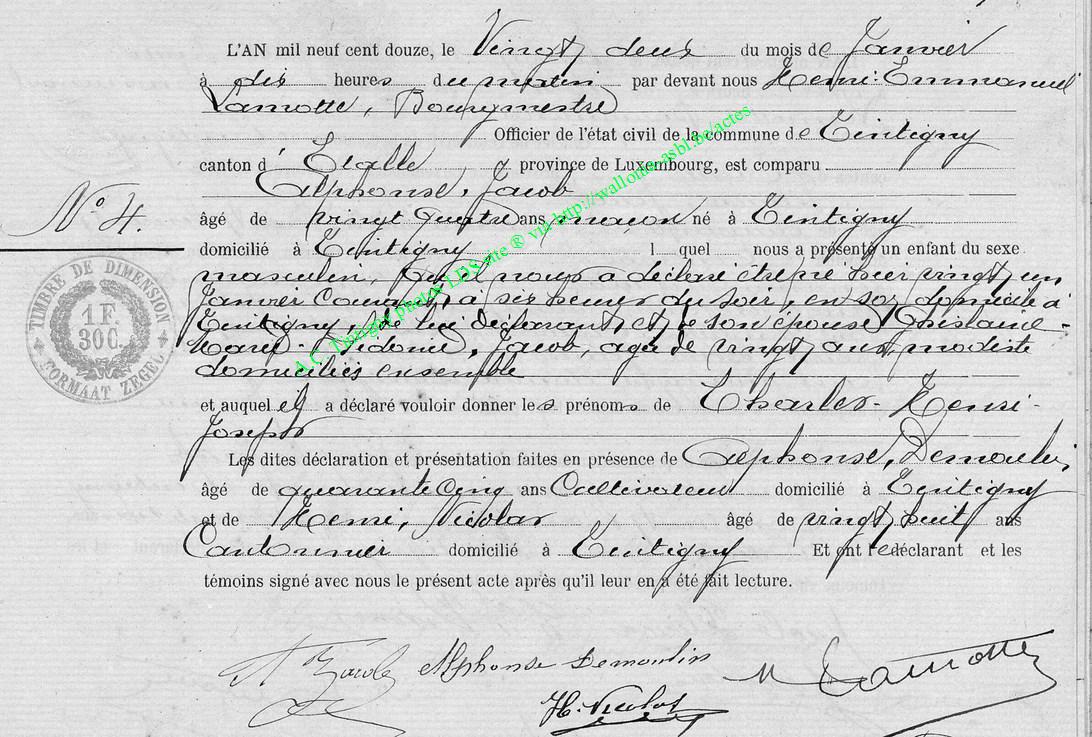 L'AN mil neuf cent douze, le Vingt deux du mois de Janvier
à dix heures du matin par devant nous Henri-Emmanuel
Lamotte, Bourgmestre
Officier de l'état civil de la commune de Tintigny
canton d'Etalle province de Luxembourg, est comparu
Alphonse, Jacob
âgé de vingt quatre ans maçon né à Tintigny
N° 4.
domicilié à Tintigny l quel nous a présenté un enfant du sexe
masculin, qu'il nous a déclaré être né hier vingt un
Janvier courant, à six heures du soir, en son domicile à
Tintigny, de lui déclarant, et de son épouse Ghislaine-
Marie-Sidonie, Jacob, agée de vingt ans, modiste
domiciliés ensemble
et auquel il a déclaré vouloir donner les prénoms de Charles-Henri-
Joseph
Les dites déclaration et présentation faites en présence de Alphonse, Demoulin,
âgé de quarante cinq ans Cultivateur domicilié à Tintigny
et de Henri, Nicolas âgé de vingt huit ans
Cantonnier domicilié à Tintigny Et ont le déclarant et les
témoins signé avec nous le présent acte après qu'il leur en a été fait lecture.
A Jacob Alphonse Demoulin Lamotte
H. Nicolas
TIMBRE DE DIMENSION
1 F.
30C.
FORMAAT ZEGEL
A.C. Tintigny photos LDS site ® via http://wallonia-asbl.be/actes